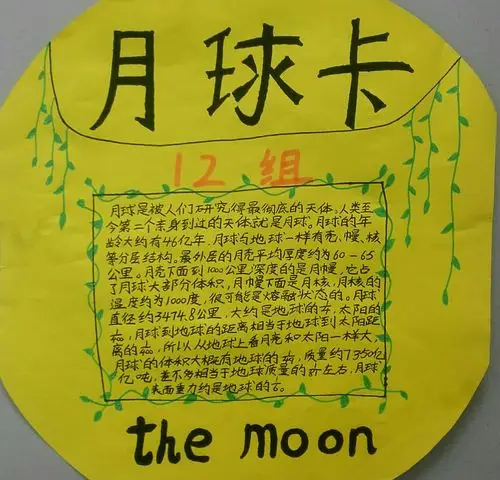 月球卡
12组
月球是被人们研究得最彻底的天体。人类至
今第二个亲身到过的天体就是月球。月球的年
龄大约有46亿年。月球与地球一样有壳、幔、核
等分层结构。最外层的月壳平均厚度约为60-65
公里。月壳下面到1000公里深度的是月幔,它占
了月球大部分体积,月幔下面是月核,月核的
温度约为1000度,很可能是熔融状态的。月球
直径约3474.8公里,大约是地球的 太阳的
月球到地球的距离相当于地球到太阳距
离的 所以从地球上看月亮和太阳一样大,
月球的体积大概有地球的 质量约7350亿
亿吨,差不多相当于地球质量的 左右,月球
表面重力约是地球的
the moon